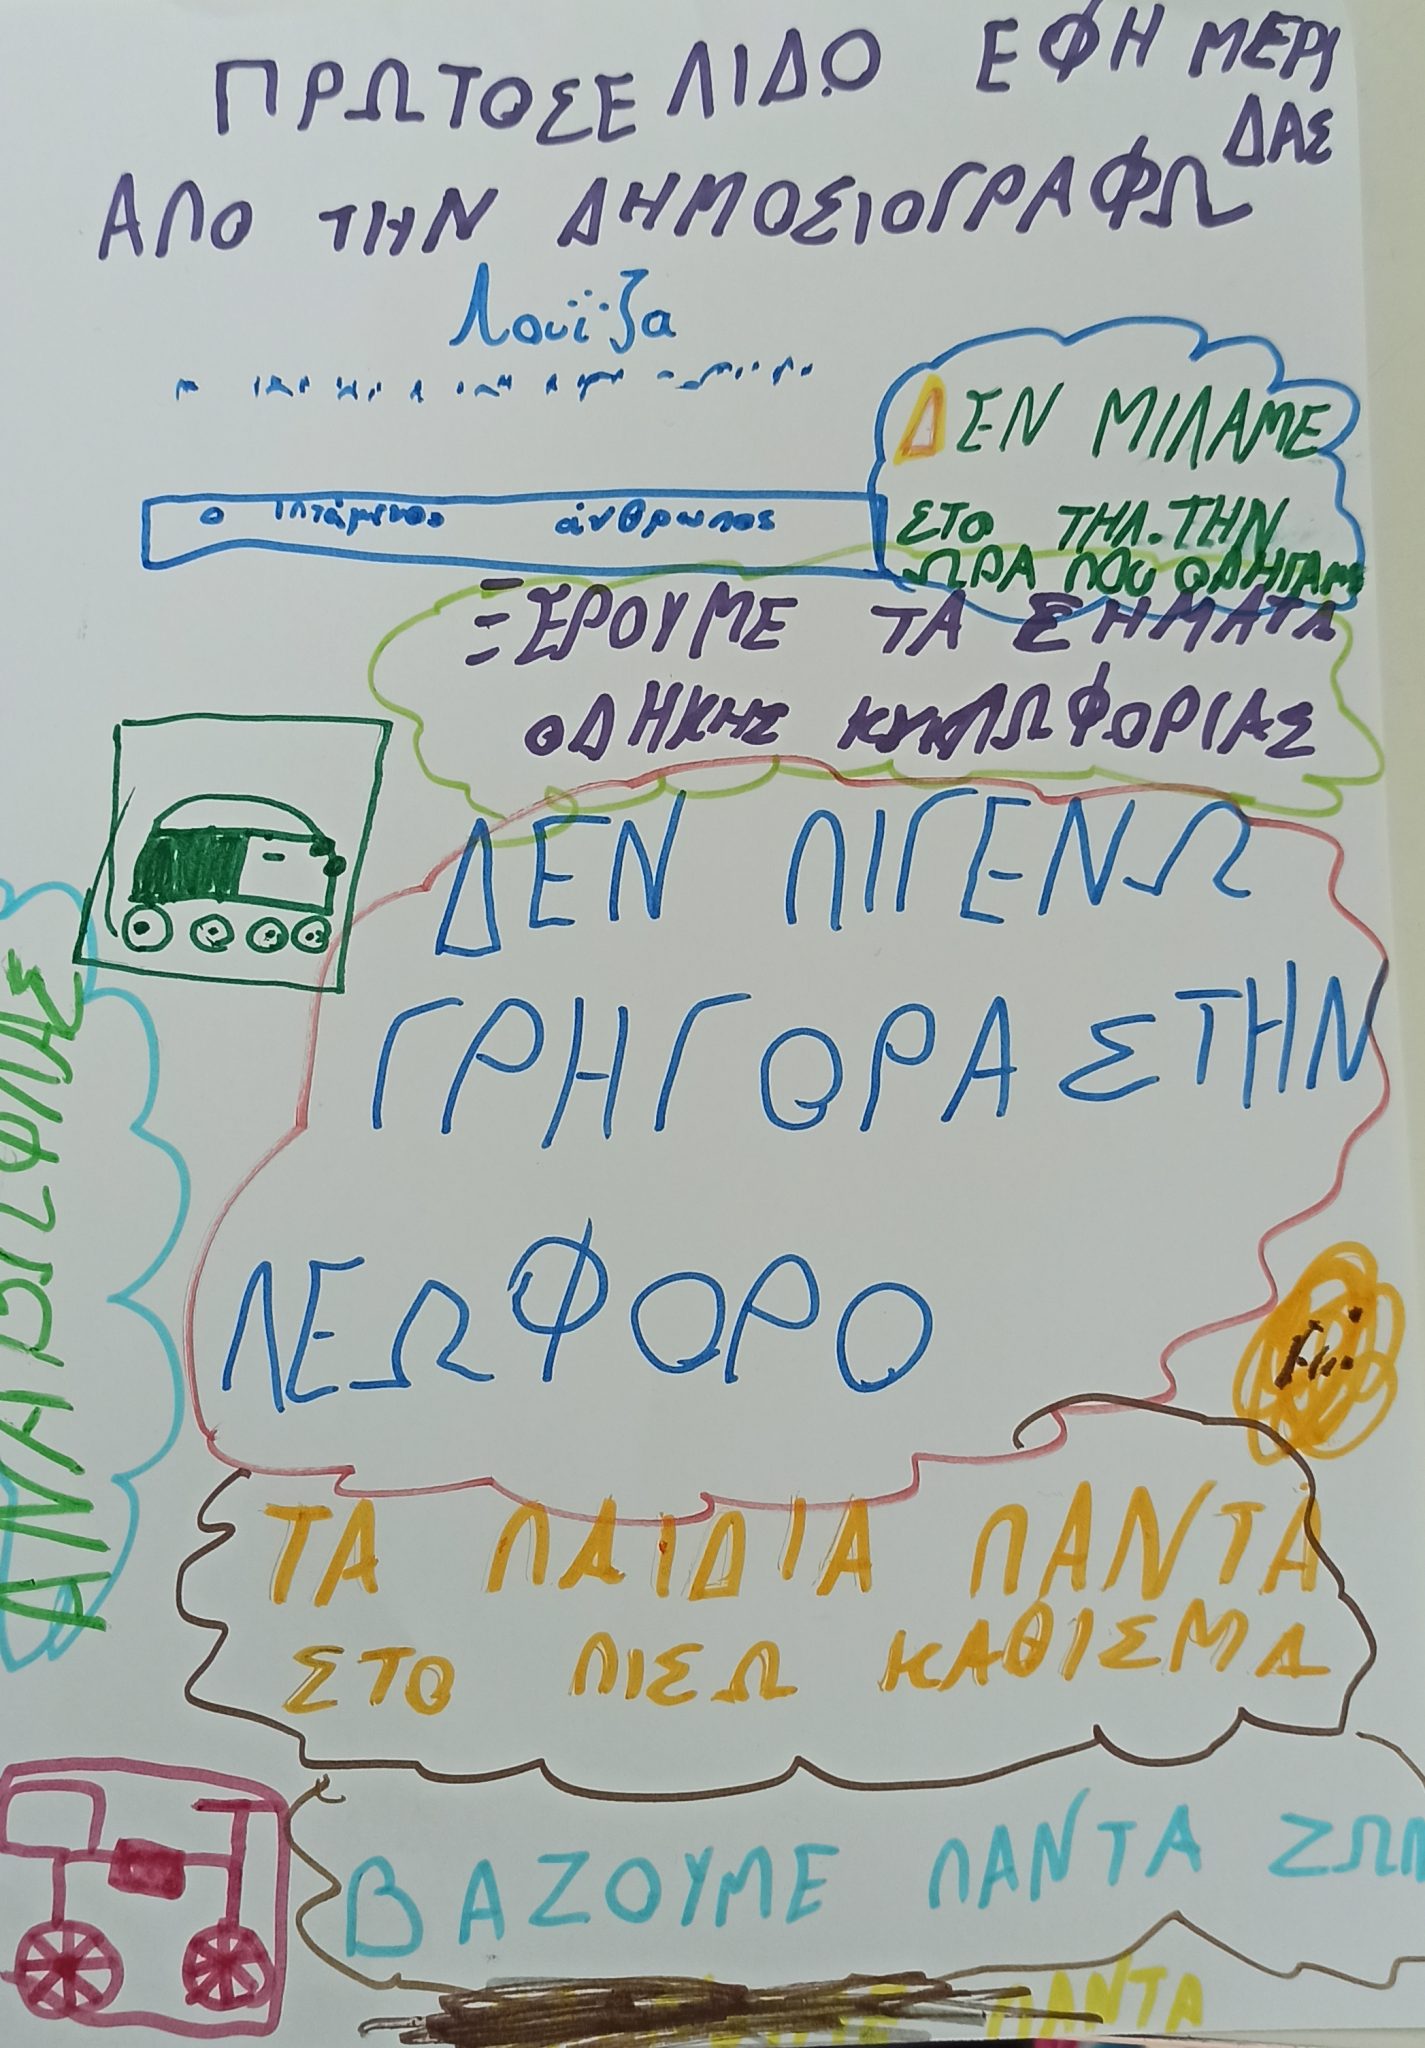 ΠΡΩΤΟΣΕΛΙΔΟ ΕΦΗΜΕΡΙ
ΔΑΣ
ΑΠΟ ΤΗΝ ΔΗΜΟΣΙΟΓΡΑΦΩ
Λουΐζα
ΔΕΝ ΜΙΛΑΜΕ
ΣΤΟ ΤΗΛ. ΤΗΝ
ΩΡΑ ΠΟΥ ΟΔΗΓΑΜΕ
ο ιπτάμενος άνθρωπος
ΞΕΡΟΥΜΕ ΤΑ ΣΗΜΑΤΑ
ΟΔΗΚΗΣ ΚΥΚΛΩΦΟΡΙΑΣ
ΔΕΝ ΠΙΓΕΝΩ
ΓΡΗΓΟΡΑ ΣΤΗΝ
ΛΕΩΦΟΡΟ
ΤΑ ΠΑΙΔΙΑ ΠΑΝΤΑ
ΣΤΟ ΠΙΣΩ ΚΑΘΙΣΜΑ
ΒΑΖΟΥΜΕ ΠΑΝΤΑ ΖΩΝ
ΠΑΝΤΑ